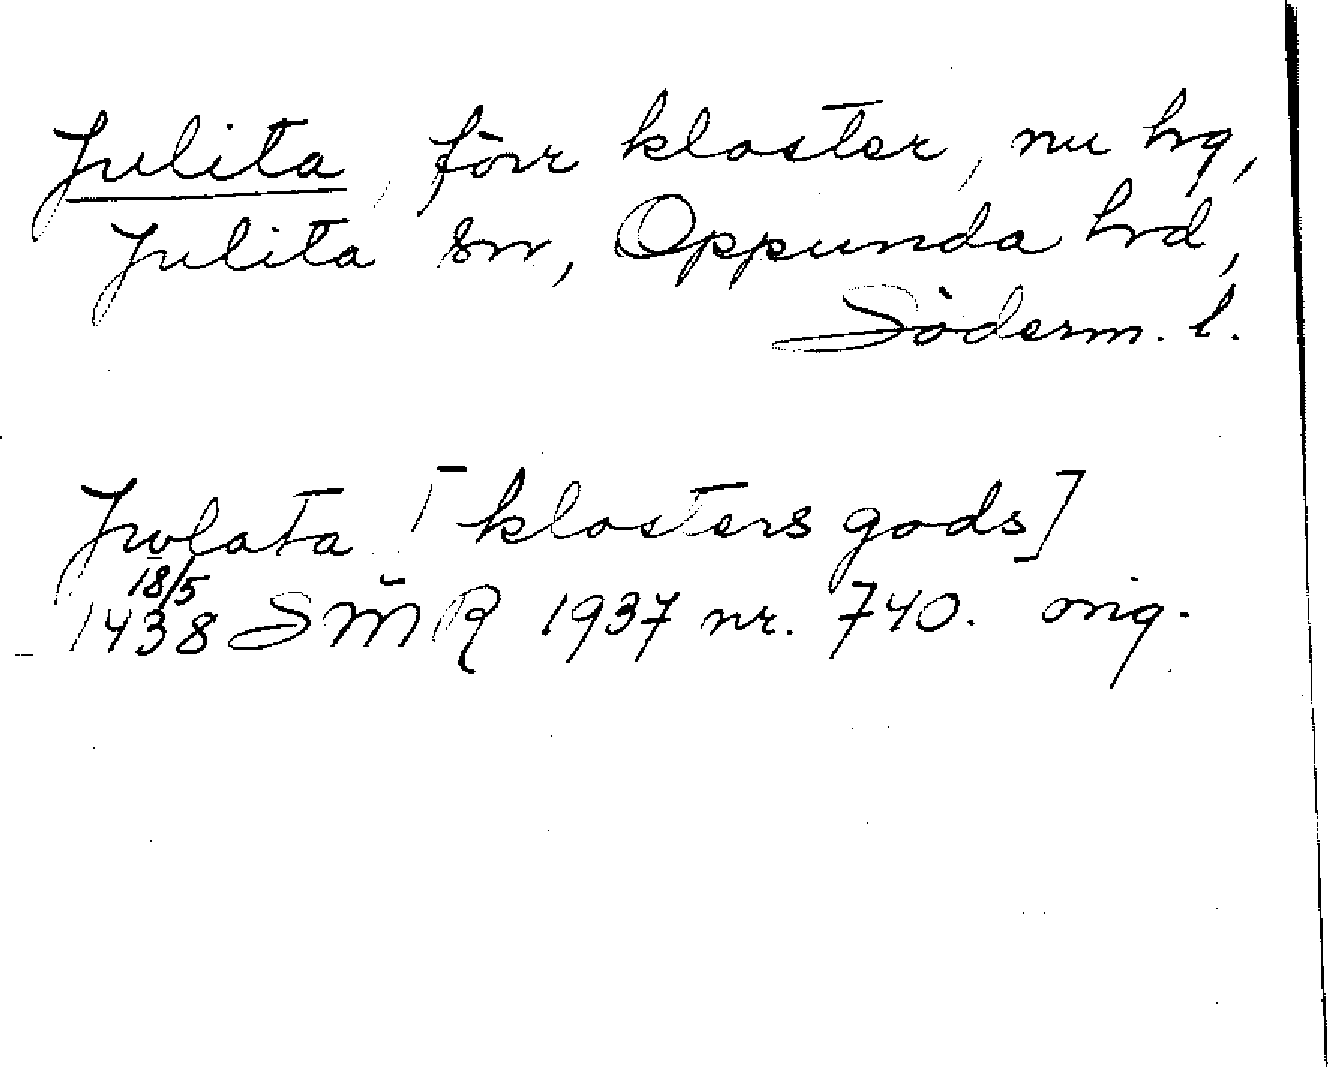 Julita, förr kloster, nu hrg,
Julita sn, Oppunda hrd,
Söderm. l.
Jwlata [klosters gods]
18/5
1438 SMR 1937 nr. 740. orig.